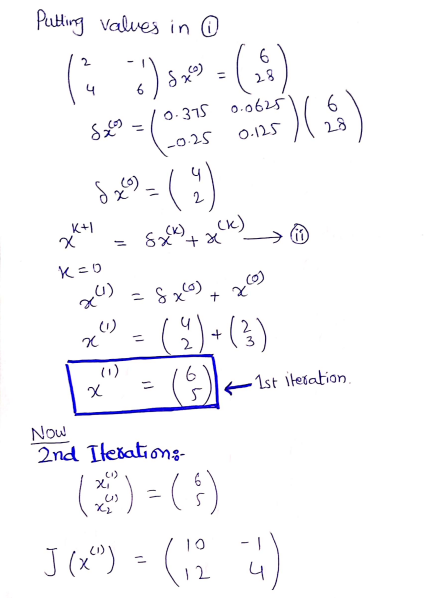 Putting values in ⓘ
( 2 -1 ; 4 6 ) δx^(0) = ( 6 ; 28 )
δx^(0) = ( 0.375 0.0625 ; -0.25 0.125 ) ( 6 ; 28 )
δx^(0) = ( 4 ; 2 )
x^K+1 = δx^(K) + x^(K) → ⓘⓘ
K = 0
x^(1) = δx^(0) + x^(0)
x^(1) = ( 4 ; 2 ) + ( 2 ; 3 )
x^(1) = ( 6 ; 5 ) ← 1st iteration.
Now
2nd Iteration:-
( x₁^(1) ; x₂^(1) ) = ( 6 ; 5 )
J(x^(1)) = ( 10 -1 ; 12 4 )